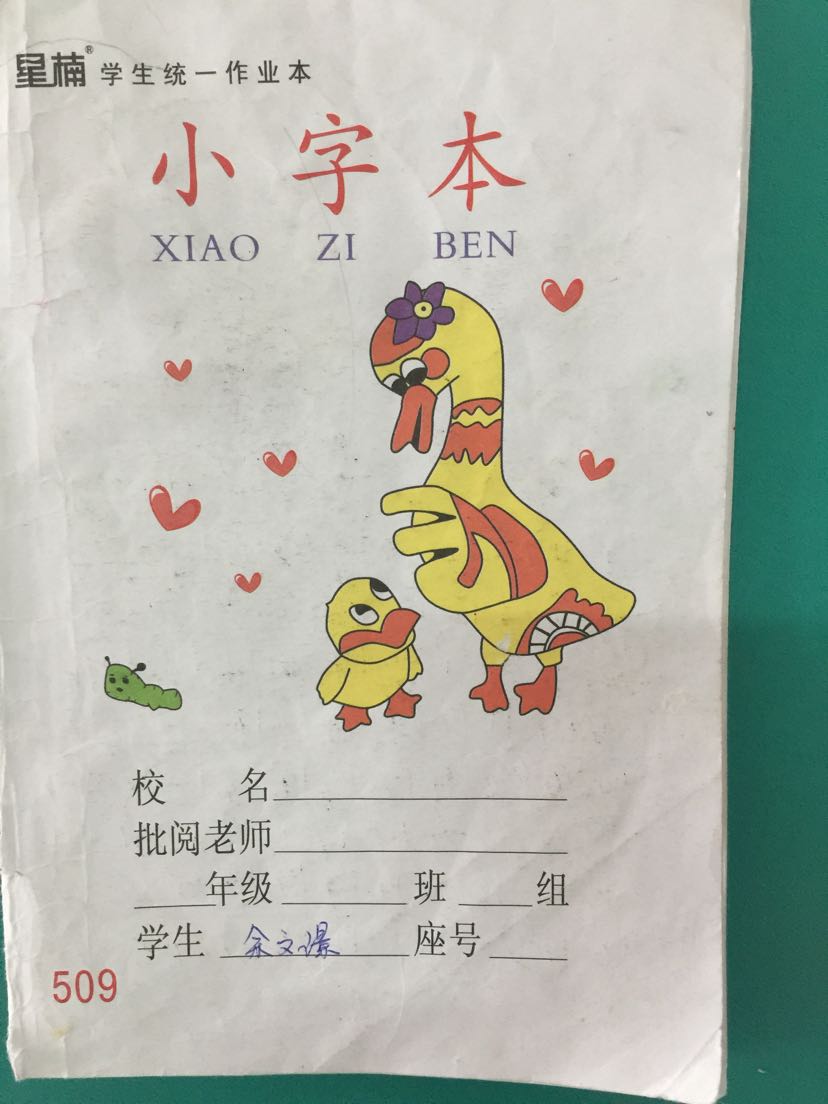 星楠® 学生统一作业本
小字本
XIAO ZI BEN
校 名
批阅老师
年级 班 组
学生 余文璟 座号
509